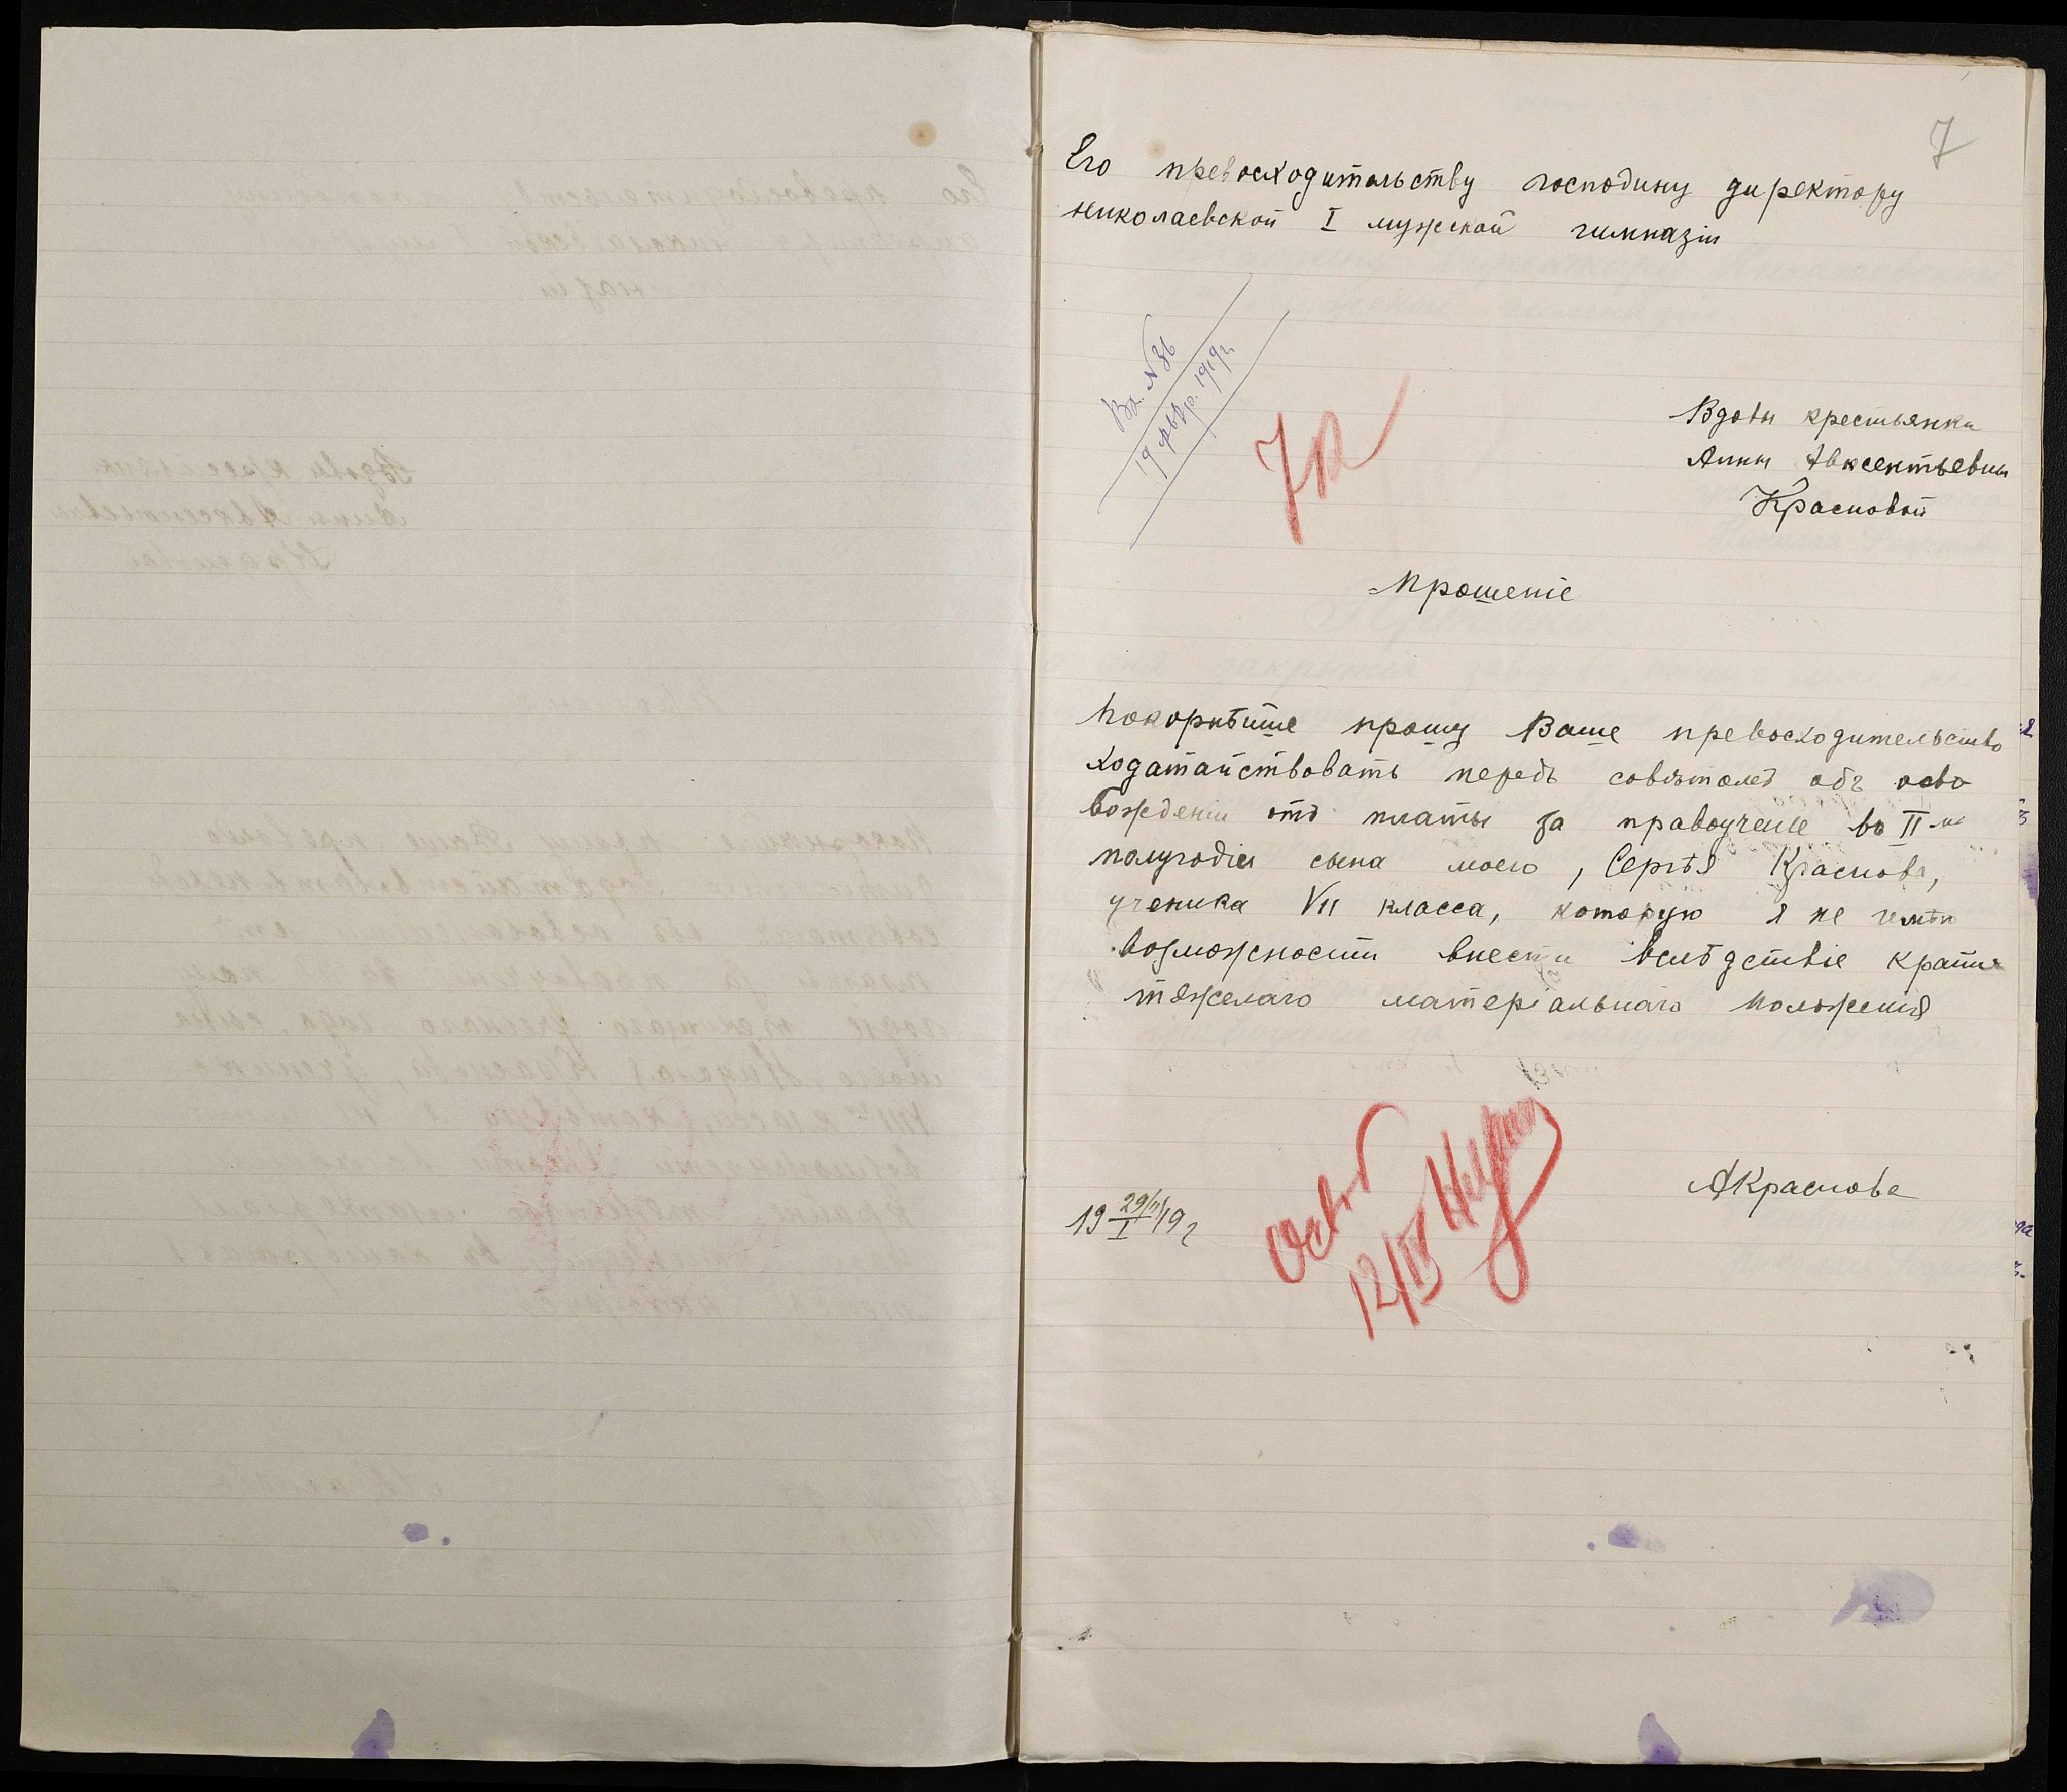 7
Его превосходительству господину директору
николаевской I мужской гимназiи
Вх. N 36
19 февр. 1919 г.
Вдовы крестьянки
Анны Авксентьевны
Красновой
Прошенiе
Покорнѣйше прошу Ваше превосходительство
ходатайствовать передъ совѣтомъ объ осво
вожденiи отъ платы за правоученiе во II-мъ
полугодiи сына моего, Сергѣя Краснова,
ученика VII класса, которую я не имѣю
возможности внести вслѣдствiе крайне
тяжелаго матерiальнаго положенiя
АКраснова
19 29/I 19 г
12/IV